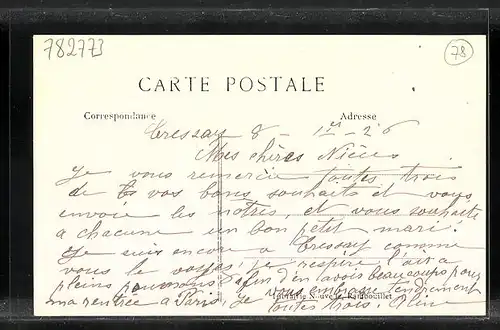 782773
78
CARTE POSTALE
Correspondance Adresse
Cressay 8 - 1er - 26
Mes chères Nièces
Je vous remercie toutes trois
de vos bons souhaits et vous
envoie les nôtres, et vous souhaite
a chacune un bon petit mari.
Je suis encore a Cressay comme
vous le voyez, je respire l'air a
pleins poumons afin d'en avoir beaucoup pour
ma rentrée a Paris, je vous embrasse tendrement
Rambouillet
toutes trois.